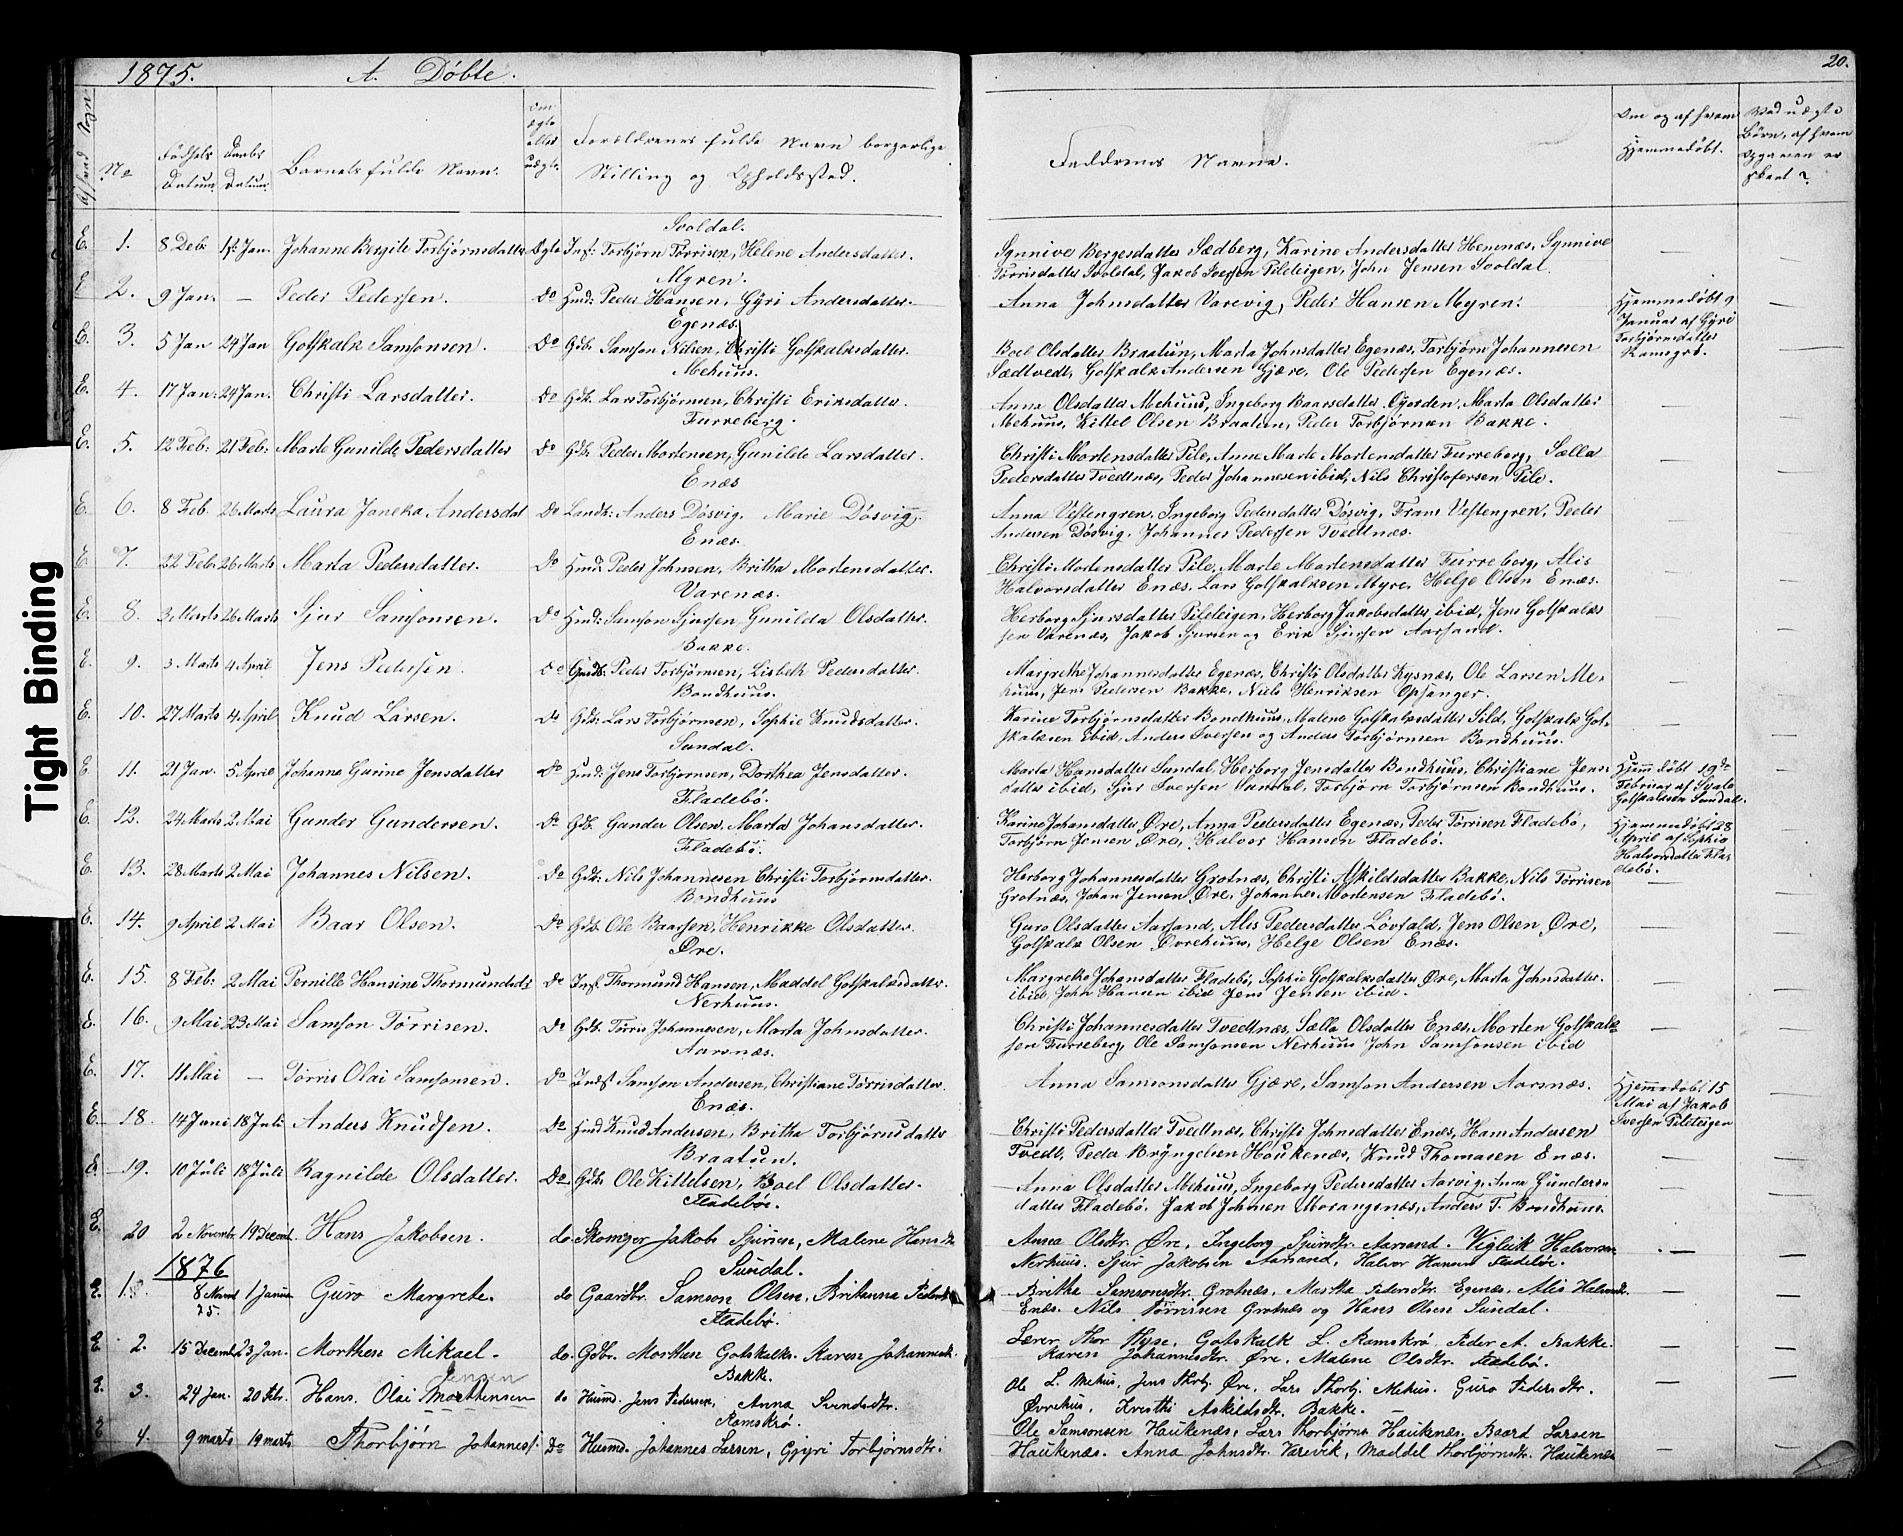 1875. A. Døbte. 20.
No
Fødsels Datum.
Daabs Datum.
Barnets fulde Navn.
Om ægte eller uægte.
Forældrenes fulde Navn borgerlige
Stilling og Opholdssted.
Faddrenes Navne.
Om og af hvem
Hjemmedøbt.
Ved uægte
Børn, af hvem
Opgaven er
skeet?
Svoldal.
E. 1. 8 Deb. 1ste Jan. Johanne Bergite Torbjørnsdatter Ægte Inst: Torbjørn Tørrisen, Helene Andersdatter. Synnive Bergesdatter Sædberg, Karine Andersdatter Henenæs, Synnive
Tørrisdatter Svoldal, Jakob Iversen Pileteigen, John Jensen Svoldal.
Myren.
E 2. 9 Jan. — Peder Pedersen. Do Hmd: Peder Hansen, Gyri Andersdatter. Anna Johnsdatter Varevig, Peder Hansen Myren. Hjemmedøbt 9
Januar af Gyri
Torbjørnsdatter
Ramsgrø.
Egenæs.
E. 3. 5 Jan 24 Jan Gotskalk Samsonsen. Do Gdb. Samson Nilsen, Christi Gotskalksdatter. Boel Olsdatter Braatun, Marta Johnsdatter Egenæs, Torbjørn Johannesen
Sædtvedt, Gotskalk Andersen Gjære, Ole Pedersen Egenæs.
Mehuus.
E. 4. 17 Jan. 24 Jan. Christi Larsdatter. Do Gdb. Lars Torbjørnsen, Christi Eriksdatter. Anna Olsdatter Mehuus, Ingeborg Baarsdatter Gjorden, Marta Olsdatter
Mehuus, Kittel Olsen Braatun, Peder Torbjørnsen Bakke.
Furreberg.
E. 5. 12 Feb: 21 Feb: Marte Gunilde Pedersdatter Do Gdb. Peder Mortensen, Gunilde Larsdatter. Christi Mortensdatter Pile, Anne Marte Mortensdatter Furreberg, Sælla
Pedersdatter Tvedtnæs, Peder Johannesen ibid, Nils Christofersen Pile.
Enæs
E. 6. 8 Feb. 26 Marts Laura Janeka Andersdat Do Landh: Anders Døsvig, Marie Døsvig. Anna Vestengren, Ingeborg Pedersdatter Døsvig, Frans Vestengren, Peder
Andersen Døsvig, Johannes Pedersen Tvedtnæs.
Enæs.
E 7. 22 Feb. 26 Marts Marta Pedersdatter. Do Hmd: Peder Johnsen, Britha Mortensdatter. Christi Mortensdatter Pile, Marte Mortensdatter Furreberg, Alis
Halvorsdatter Enæs, Lars Gotskalksen Myre, Helge Olsen Enæs.
Varenæs.
E. 8. 3 Marts 26 Marts Sjur Samsonsen. Do Hmd: Samson Sjursen Gunilda Olsdatter. Herborg Sjursdatter Pileteigen, Herborg Jakobsdatter ibid, Jens Gotskalk
sen Varenæs, Jakob Sjursen og Erik Sjursen Aarsand.
Bakke.
E. 9. 3 Marts 4 April Jens Pedersen. Do Gmdb. Peder Torbjørnsen, Lisbeth Pedersdatter. Margrethe Johannesdatter Egenæs, Christi Olsdatter Kysnæs, Ole Larsen Me-
huus, Jens Pedersen Bakke, Niels Henriksen Opsanger.
Bondhuus.
E. 10. 27 Marts 4 April Knud Larsen. Do Gdb: Lars Torbjørnsen, Sophie Knudsdatter. Karine Torbjørnsdatter Bondhuus, Malene Gotskalksdatter Sild, Gotskalk Got-
skalksen ibid, Anders Iversen og Anders Torbjørnsen Bondhuus.
Sundal.
E 11. 21 Jan. 5 April Johanne Garine Jensdatter Do Hmd: Jens Torbjørnsen, Dorthea Jensdatter. Marta Hansdatter Sundal, Herborg Jensdatter Bondhuus, Christiane Jens-
datter ibid, Sjur Iversen Sundal, Torbjørn Torbjørnsen Bondhuus. Hjemdøbt 19de
Februar af
Gotskalksen Sundal.
Fladebø.
E. 12. 24 Marts 2 Mai Gunder Gundersen. Do Gdb. Gunder Olsen, Marta Johansdatter. Karine Johansdatter Øre, Anna Pedersdatter Egenæs, Peder Tørrisen Fladebø,
Torbjørn Jensen Øre, Halvor Hansen Fladebø. Hjemmedøbt 28
April af Sophia
Halvorsdatter Fla-
debø.
Fladebø.
E. 13. 28 Marts 2 Mai Johannes Nilsen. Do Gdb: Nils Johannesen Christi Torbjørnsdatter. Herborg Johannesdatter Grotnæs, Christi Askildsdatter Bakke, Nils Tørrisen
Grotnæs, Johan Jensen Øre, Johannes Mortensen Fladebø.
Bondhuus
E. 14. 9 April 2 Mai Baar Olsen. Do Gdb. Ole Baarsen, Henrikke Olsdatter. Guro Olsdatter Aarsand, Alis Pedersdatter Løvfald, Jens Olsen Øre,
Gotskalk Olsen Øvrehuus, Helge Olsen Enæs.
Øre.
E. 15. 8 Feb: 2 Mai Pernille Hansine Thormundsdt Do Inst. Thormund Hansen, Maddel Gotskalksdatter. Margrethe Johansdatter Fladebø, Sophie Gotskalksdatter Øre, Marta Johnsdatter
ibid, John Hansen ibid Jens Jensen ibid.
Nerhuus.
E 16. 9 Mai 23 Mai Samson Tørrisen. Do Gdb. Tørris Johannesen, Marta Johnsdatter. Christi Johannesdatter Tvedtnæs, Sælla Olsdatter Enæs, Morten Gotskalk-
sen Furreberg, Ole Samsonsen Nerhuus John Samsonsen ibid
Aarsnæs.
E. 17. 11 Mai — Tørris Olai Samsonsen. Do Indst Samson Andersen, Christiane Tørrisdatter. Anna Samsonsdatter Gjære, Samson Andersen Aarsnæs. Hjemmedøbt 15
Mai af Jakob
Iversen Pileteigen
Enæs.
E. 18. 14 Juni 18 Juli Anders Knudsen. Do Hmd Knud Andersen, Britha Torbjørnsdatter Christi Pedersdatter Tvedtnæs, Christi Johnsdatter Enæs, Hans Andersen
Tvedt, Peder Bryngelsen Haukenæs, Knud Thomasen Enæs.
Braatun.
E. 19. 10 Juli 18 Juli Ragnilde Olsdatter. Do. Gdb. Ole Kittelsen, Boel Olsdatter. Anna Olsdatter Mehuus, Ingeborg Pedersdatter Aarvig, Anna Gunders-
datter Fladebø, Jakob Johnsen Morangsnæs, Anders T. Bondhuus.
Fladebø.
E. 20 2 Novemb. 19 Decemb. Hans Jakobsen. do Skomger Jakob Sjursen, Malene Hansdtr Anna Olsdtr. Øre, Ingeborg Sjursdtr. Aarsand. Vigleik Halvorsen
Nerhuus. Sjur Jakobsen Aarsand, Halvor Hansen Fladebø.
1876
Sundal.
E. 1. 8 Novmb 75. 1 Januar Guro Margrete. do Gaardbr. Samson Olsen, Britanna Pedersdt Brithe Samsonsdtr. Grotnæs, Martha Pedersdtr. Egenæs, Alis Halvorsdt.
Enæs. Nils Tørrisen Grotnæs og Hans Olsen Sundal.
Fladebø.
E 2. 15 Decemb. 23 Jan. Morthen Mikael. do. Gdbr. Morthen Gotskalks. Karen Johannesdt. Lærer Thor Hyse, Gotskalk L. Ramskrø Peder A. Bakke.
Karen Johannesdtr. Øre, Malene Olsdtr. Fladebø.
Bakke.
Jensen
E. 3. 24 Jan. 20 Febr. Hans Olai Morthensen do Husmd. Jens Pedersen, Anna Svendsdtr. Ole L. Mehus, Jens Thorbj. Øre, Lars Thorbj. Mehus. Guro Pedersdtr.
Øvrehus, Kristhi Askildsdtr. Bakke.
Ramskrø.
E 4. 9 marts 19 marts Thorbjørn Johanness. Do Husmd. Johannes Larsen, Gjyri Torbjørnsdtr. Ole Samsonsen Haukenæs, Lars Thorbjørns Haukenæs. Baard Larsen
Haukenæs. Anna Johnsdtr. Varevik, Maddel Thorbjørnsdtr. Haukenæs
Tight Binding